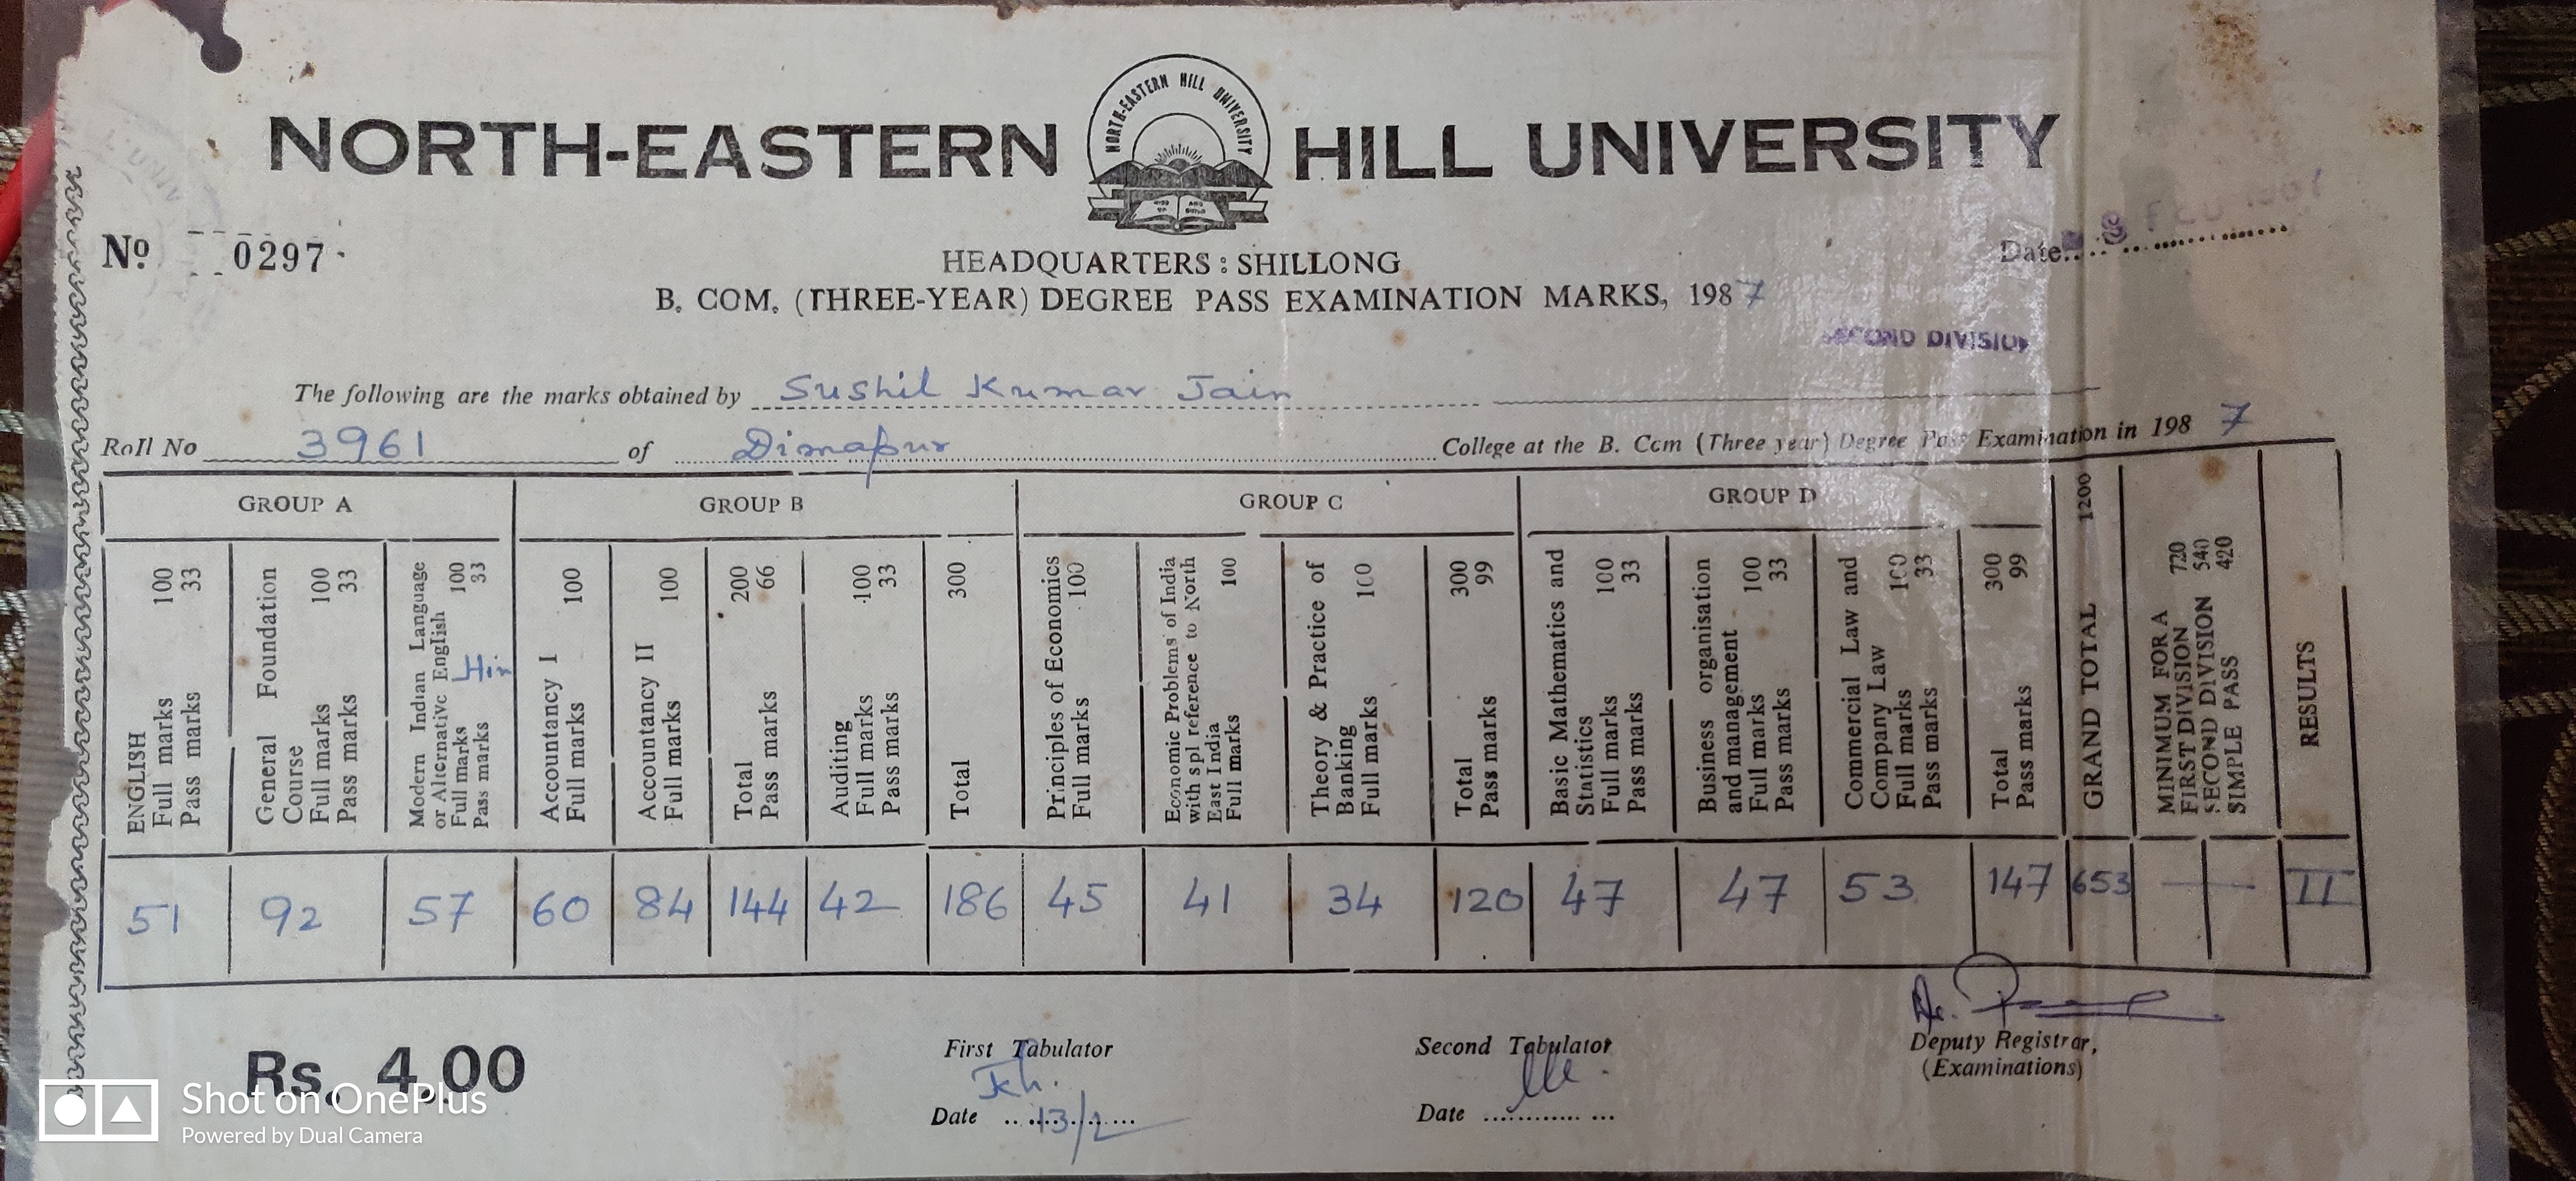 NORTH-EASTERN HILL UNIVERSITY
NORTH-EASTERN HILL UNIVERSITY
Nº 0297
Date
HEADQUARTERS : SHILLONG
B. COM. (THREE-YEAR) DEGREE PASS EXAMINATION MARKS, 1987
SECOND DIVISION
The following are the marks obtained by Sushil Kumar Jain
Roll No 3961 of Dimapur College at the B. Com (Three year) Degree Pass Examination in 1987
GROUP A GROUP B GROUP C GROUP D
ENGLISH
Full marks 100
Pass marks 33
General Foundation
Course
Full marks 100
Pass marks 33
Modern Indian Language
or Alternative English
Full marks 100
Pass marks 33
Accountancy I
Full marks 100
Accountancy II
Full marks 100
Total 200
Pass marks 66
Auditing
Full marks 100
Pass marks 33
Total 300
Principles of Economics
Full marks 100
Economic Problems of India
with spl reference to North
East India
Full marks 100
Theory & Practice of
Banking
Full marks 100
Total 300
Pass marks 99
Basic Mathematics and
Statistics
Full marks 100
Pass marks 33
Business organisation
and management
Full marks 100
Pass marks 33
Commercial Law and
Company Law
Full marks 100
Pass marks 33
Total 300
Pass marks 99
GRAND TOTAL 1200
MINIMUM FOR A
FIRST DIVISION 720
SECOND DIVISION 540
SIMPLE PASS 420
RESULTS
51 92 57 60 84 144 42 186 45 41 34 120 47 47 53 147 653 — II
Rs. 4.00
First Tabulator
Date 13/2
Second Tabulator
Date
Deputy Registrar,
(Examinations)
Shot on OnePlus
Powered by Dual Camera